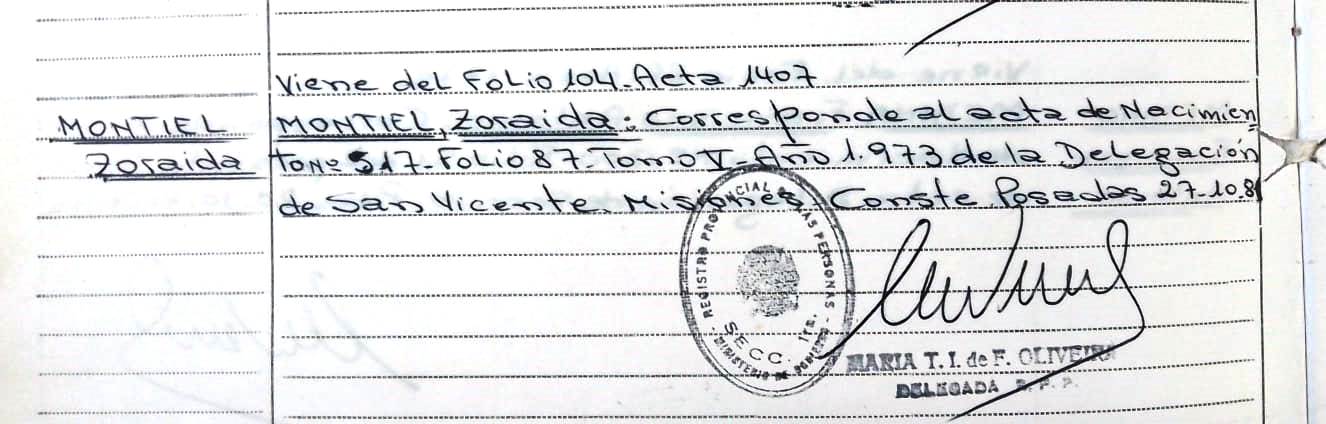 Viene del Folio 104-Acta 1407
MONTIEL
Zoraida
MONTIEL, Zoraida: Corresponde al acta de Nacimien
to Nº 517-Folio 87-Tomo V-Año 1.973 de la Delegación
de San Vicente. Misiones. Conste. Posadas 27-10-81
REGISTRO PROVINCIAL DE LAS PERSONAS
SECC. 1ra.
MINISTERIO DE GOBIERNO
MARIA T. I. de F. OLIVEIRA
DELEGADA R. P. P.